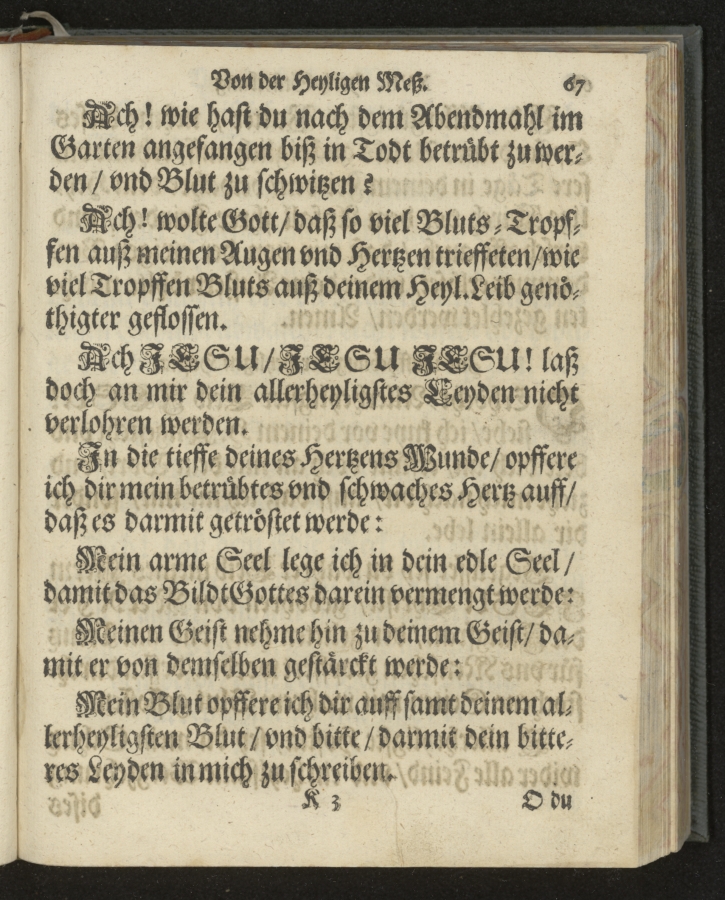 Von der Heyligen Meß. 67
Ach! wie hast du nach dem Abendmahl im
Garten angefangen biß in Todt betrübt zu wer-
den / vnd Blut zu schwitzen?
Ach! wolte Gott/ daß so viel Bluts-Tropf-
fen auß meinen Augen vnd Hertzen trieffeten/wie
viel Tropffen Bluts auß deinem Heyl. Leib genö-
thigter geflossen.
Ach JESU/ JESU JESU! laß
doch an mir dein allerheyligstes Leyden nicht
verlohren werden.
In die tieffe deines Hertzens Wunde/ opffere
ich dir mein betrübtes vnd schwaches Hertz auff/
daß es darmit getröstet werde:
Mein arme Seel lege ich in dein edle Seel /
damit das Bildt Gottes darein vermengt werde:
Meinen Geist nehme hin zu deinem Geist/ da-
mit er von demselben gestärckt werde:
Mein Blut opffere ich dir auff samt deinem al-
lerheyligsten Blut / vnd bitte / darmit dein bitte-
res Leyden in mich zu schreiben.
K 3 O du